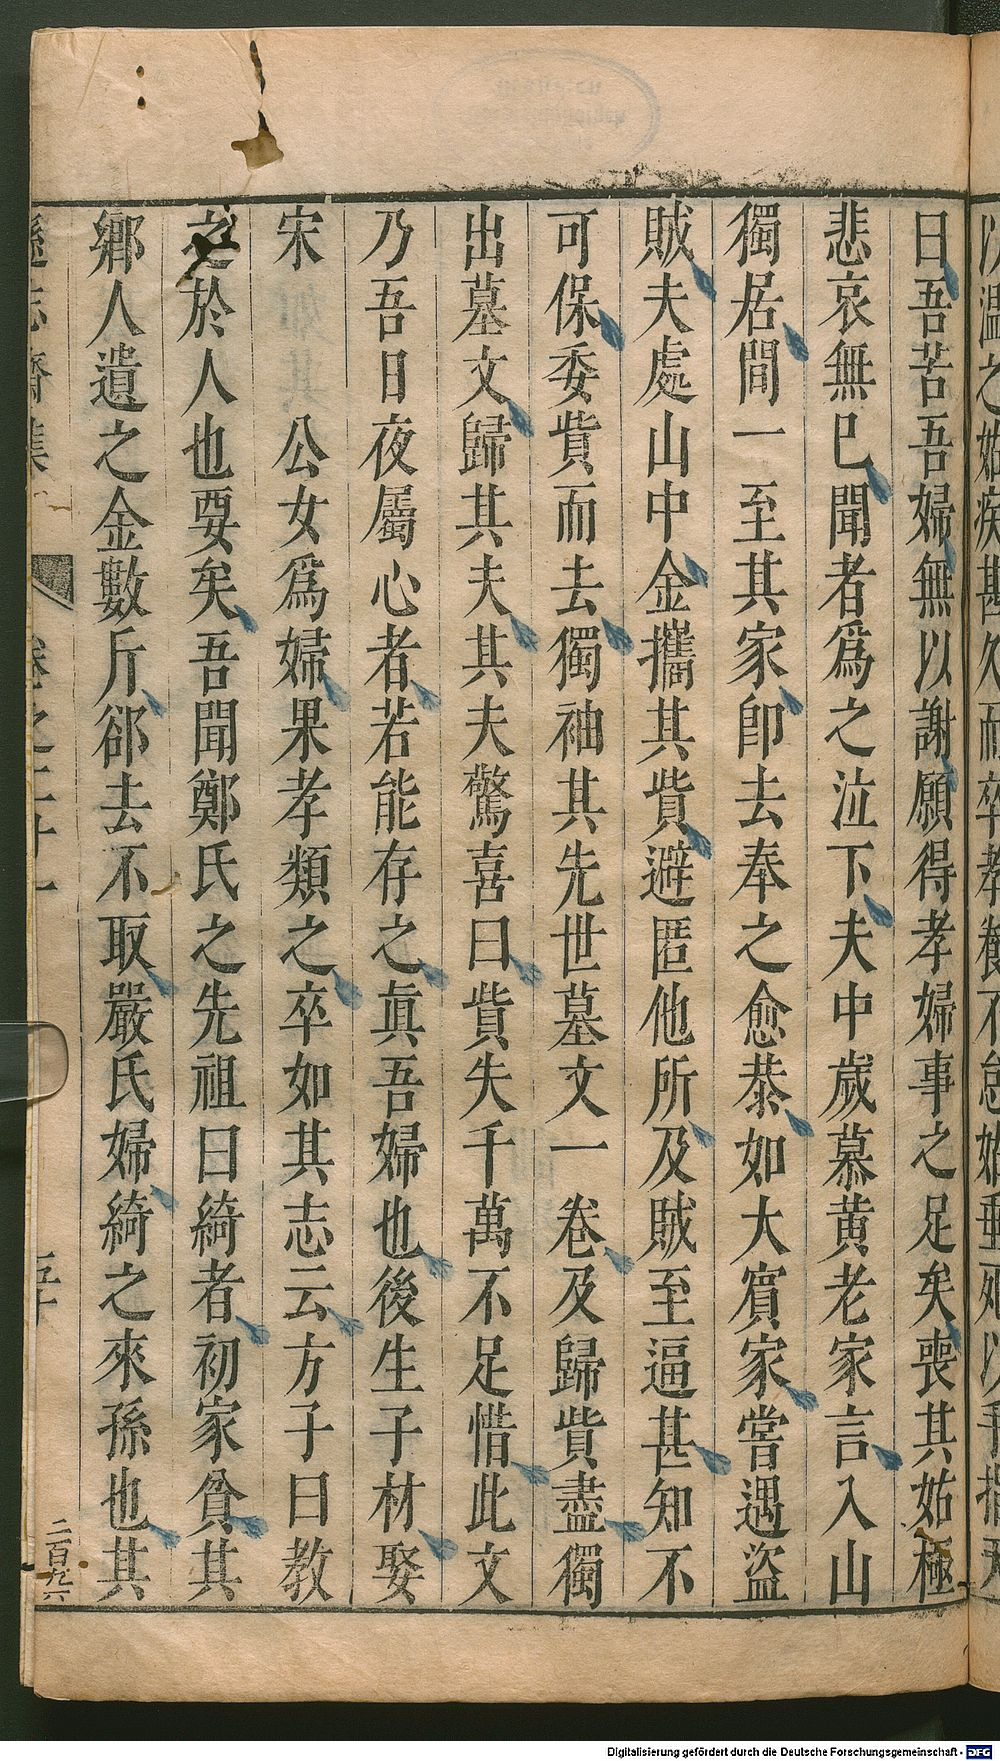 曰吾苦吾婦無以謝願得孝婦事之足矣喪其姑極
悲哀無已聞者爲之泣下夫中歲慕黄老家言入山
獨居間一至其家卽去奉之愈恭如大賓家嘗遇盜
賊夫處山中金攜其貲避匿他所及賊至逼甚知不
可保委貲而去獨袖其先世墓文一卷及歸貲盡獨
出墓文歸其夫其夫驚喜曰貲失千萬不足惜此文
乃吾日夜屬心者若能存之眞吾婦也後生子材娶
宋　公女爲婦果孝類之卒如其志云方子曰教
之於人也要矣吾聞鄭氏之先祖曰綺者初家貧其
鄉人遺之金數斤郤去不取嚴氏婦綺之來孫也其
遜志齋集　卷之二十一　五十
二百九六
Digitalisierung gefördert durch die Deutsche Forschungsgemeinschaft - DFG